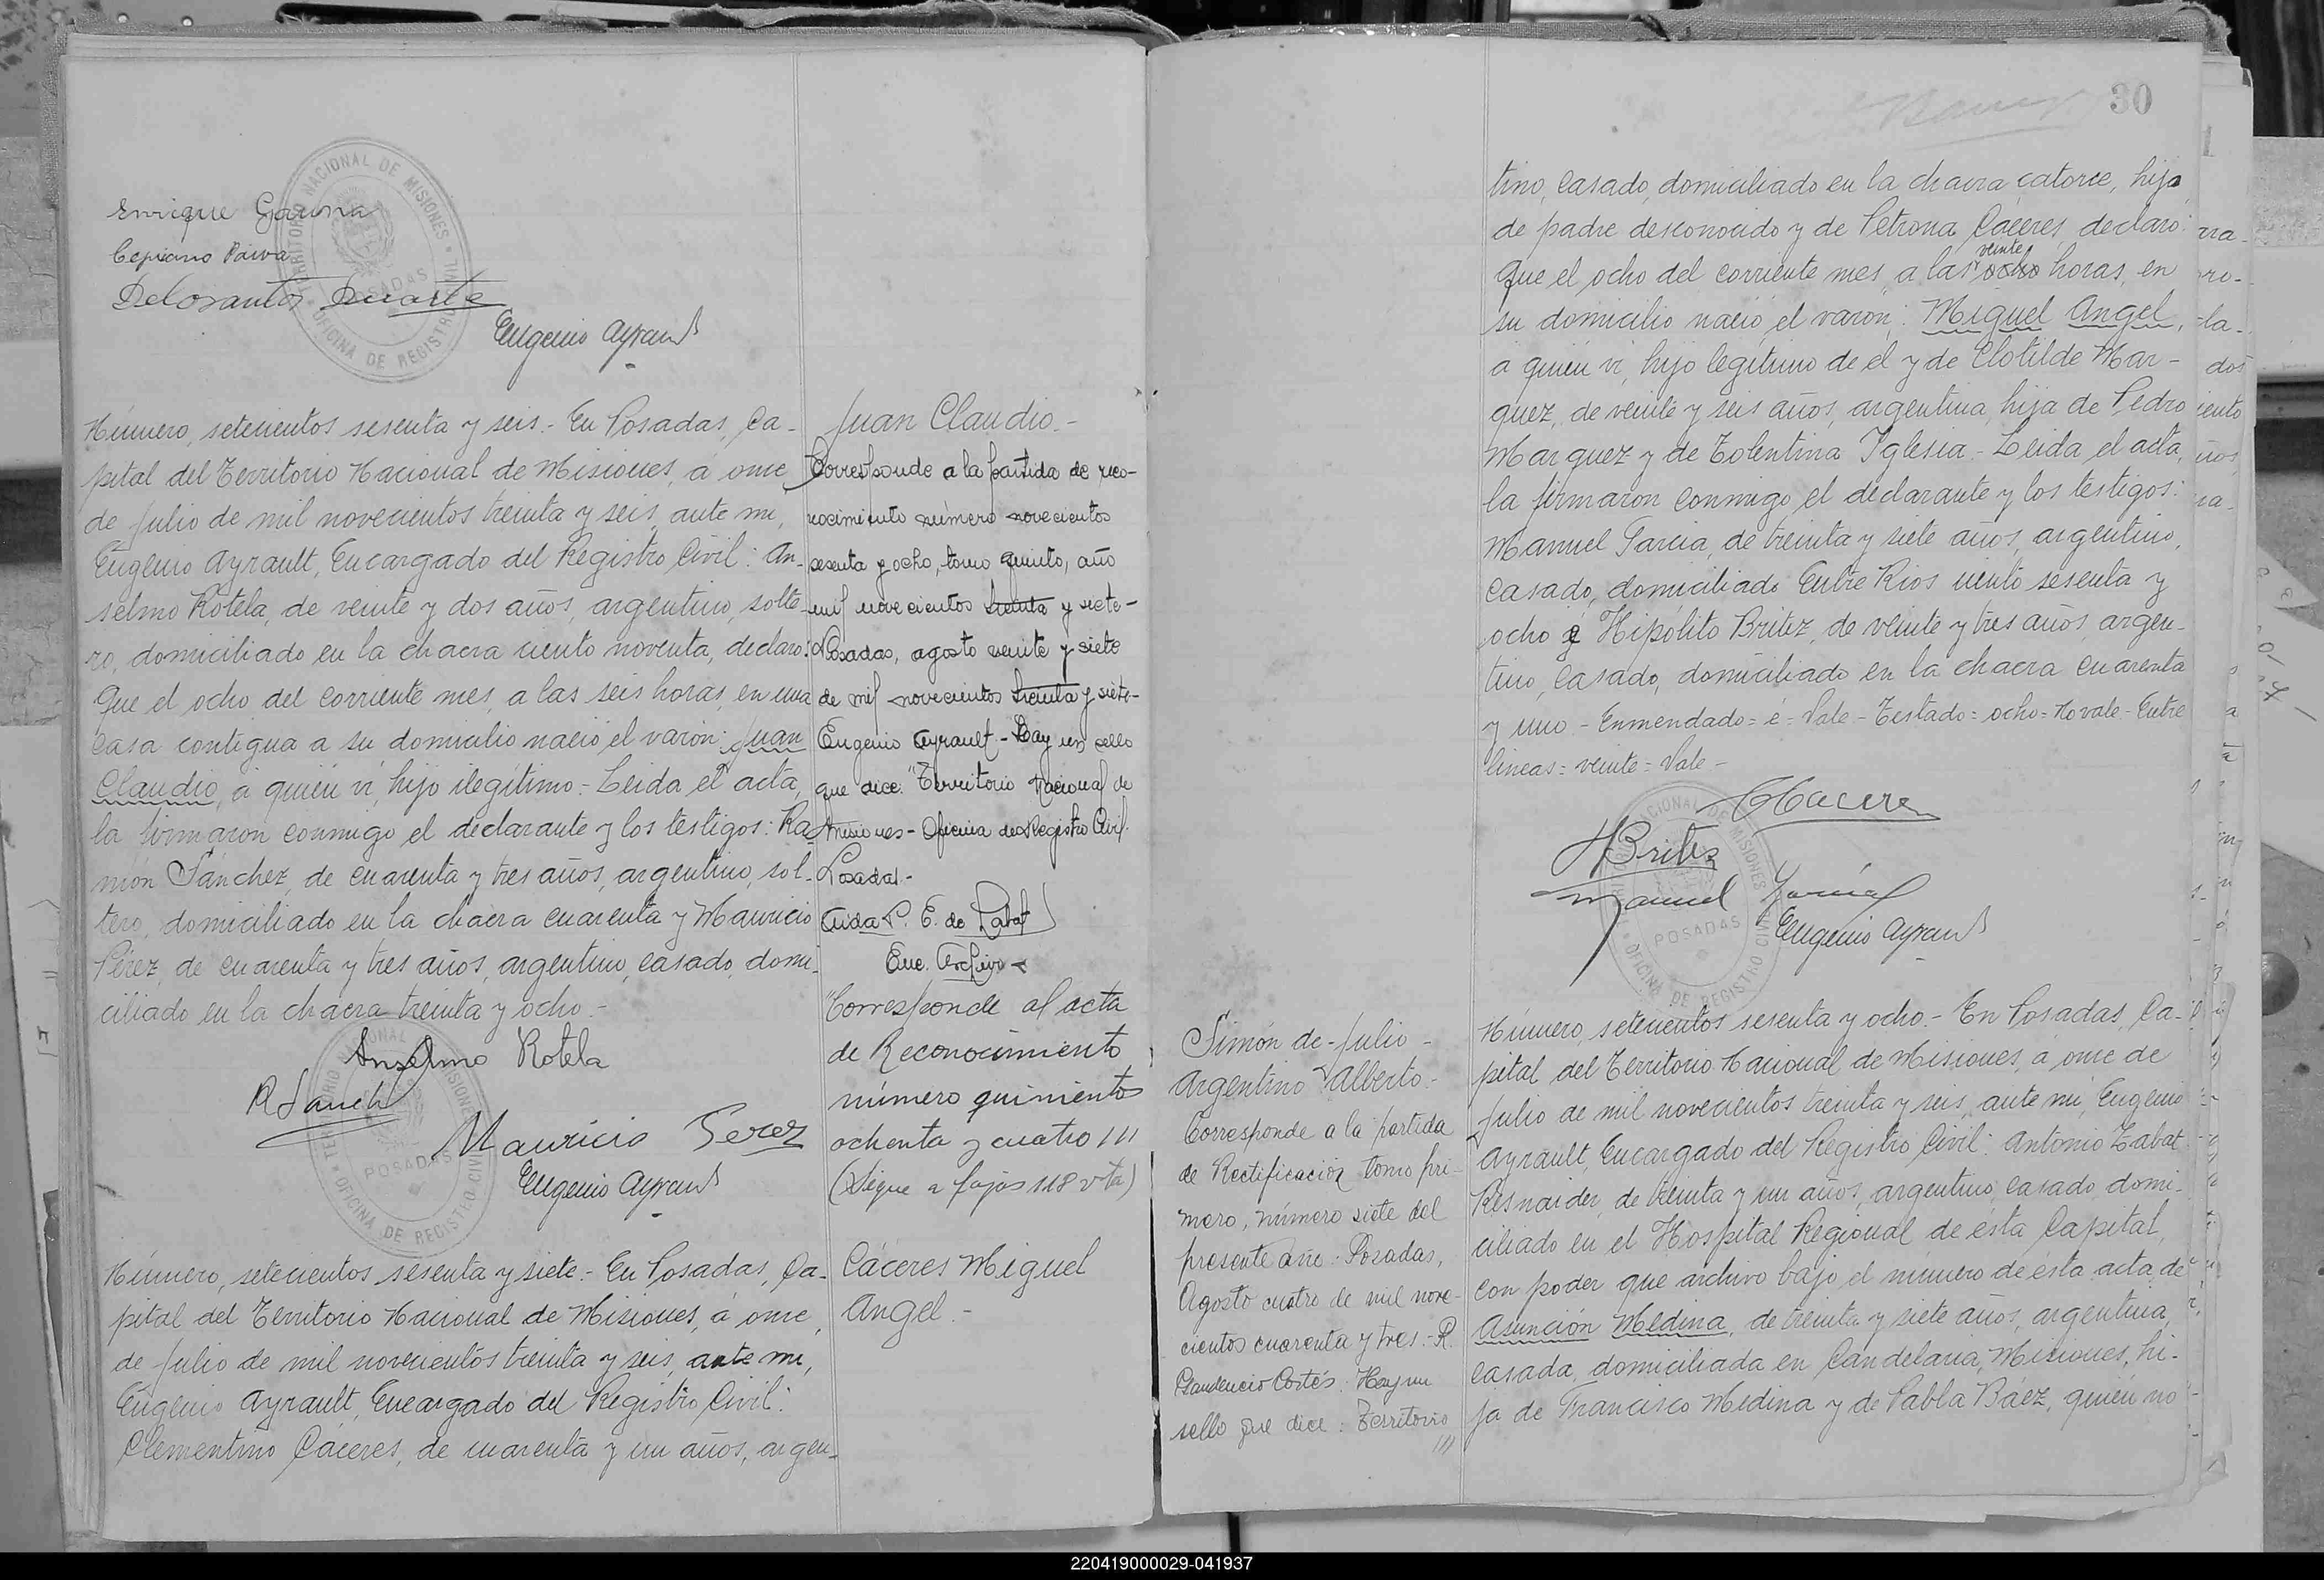 Enrique Gauna
Cepriano Paiva
Delosantos Duarte
Eugenio Ayrault
TERRITORIO NACIONAL DE MISIONES
POSADAS
OFICINA DE REGISTRO CIVIL
Número, setecientos sesenta y seis.- En Posadas, Ca-
pital del Territorio Nacional de Misiones, á once
de Julio de mil novecientos treinta y seis, ante mi,
Eugenio Ayrault, Encargado del Registro Civil: An-
selmo Rotela, de veinte y dos años, argentino, solte-
ro, domiciliado en la chacra ciento noventa, declaro:
Que el ocho del corriente mes, a las seis horas, en una
casa contigua a su domicilio nació el varón: Juan
Claudio, á quién vi, hijo ilegítimo.- Leida el acta,
la firmaron conmigo el declarante y los testigos: Ra-
món Sánchez, de cuarenta y tres años, argentino, sol-
tero, domiciliado en la chacra cuarenta y Mauricio
Pérez, de cuarenta y tres años, argentino, casado, domi-
ciliado en la chacra treinta y ocho.-
Anselmo Rotela
R Sanch
Mauricio Perez
Eugenio Ayrault
POSADAS
OFICINA DE REGISTRO CIVIL
Juan Claudio.-
Corresponde a la partida de reco-
nocimiento número novecientos
sesenta y ocho, tomo quinto, año
mil novecientos treinta y siete-
Posadas, agosto veinte y siete
de mil novecientos treinta y siete-
Eugenio Ayrault - Hay un sello
que dice: "Territorio Nacional de
Misiones - Oficina de Registro Civil.
Posadas-
Enc. Archivo
"Corresponde al acta
de Reconocimiento
número quinientos
ochenta y cuatro ///
(Sigue a fojas 118 vta)
Número, setecientos sesenta y siete.- En Posadas, Ca-
pital del Territorio Nacional de Misiones, á once,
de Julio de mil novecientos treinta y seis, ante mi,
Eugenio Ayrault, Encargado del Registro Civil:
Clementino Cáceres, de cuarenta y un años, argen-
Cáceres Miguel
Angel.-
30
tino, casado, domiciliado en la chacra catorce, hijo
de padre desconocido y de Petrona Cáceres, declaró:
veinte
Que el ocho del corriente mes, a las ocho horas, en
su domicilio nació el varón: Miguel Angel,
á quién vi, hijo legítimo de él y de Clotilde Mar-
quez, de veinte y seis años, argentina, hija de Pedro
Marquez y de Tolentina Iglesia.- Leida el acta,
la firmaron conmigo el declarante y los testigos:
Manuel Garcia, de treinta y siete años, argentino,
casado, domiciliado Entre Rios ciento sesenta y
ocho é Hipólito Britez, de veinte y tres años, argen-
tino, casado, domiciliado en la chacra cuarenta
y uno - Enmendado = é = Vale - Testado = ocho = No vale - Entre
lineas = veinte = Vale -
CCaceres
HBritez
Manuel Garcia
Eugenio Ayrault
POSADAS
OFICINA DE REGISTRO CIVIL
Simón de Julio-
Argentino Alberto.-
Corresponde a la partida
de Rectificación tomo pri-
mero, número siete del
presente año.- Posadas,
Agosto cuatro de mil nove-
cientos cuarenta y tres.- R.
Gaudencio Cortés. Hay un
sello que dice: Territorio
///
Número, setecientos sesenta y ocho.- En Posadas, Ca-
pital del Territorio Nacional de Misiones, á once de
Julio de mil novecientos treinta y seis, ante mi, Eugenio
Ayrault, Encargado del Registro Civil: Antonio Zabat
Kesnaider, de treinta y un años, argentino, casado, domi-
ciliado en el Hospital Regional de ésta Capital,
con poder que archivo bajo el número de ésta acta de
Asunción Medina, de treinta y siete años, argentina,
casada, domiciliada en Candelaria, Misiones, hi-
ja de Francisco Medina y de Pabla Báez, quién no
220419000029-041937